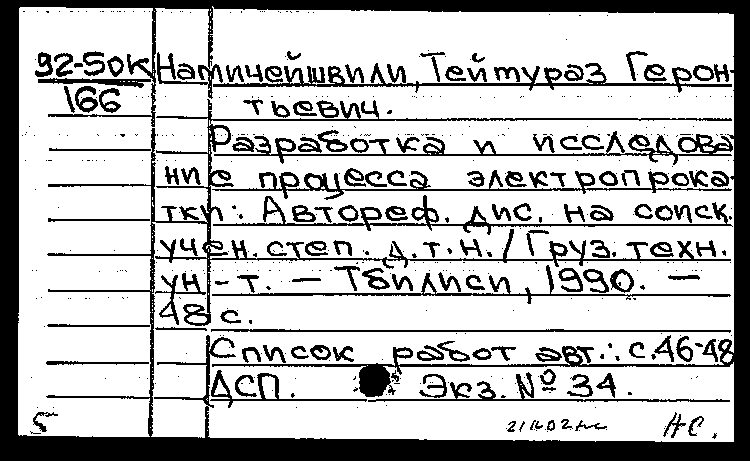 92-50К Натичейшвили, Теймураз Герон-
166 тьевич.
Разработка и исследова
ние процесса электропрока-
тки: Автореф. дис. на соиск.
учен. степ. д.т.н./Груз. техн.
ун-т. — Тбилиси, 1990. —
48 с.
Список работ авт.: с.46-48
ДСП. Экз. № 34.
5 НС.